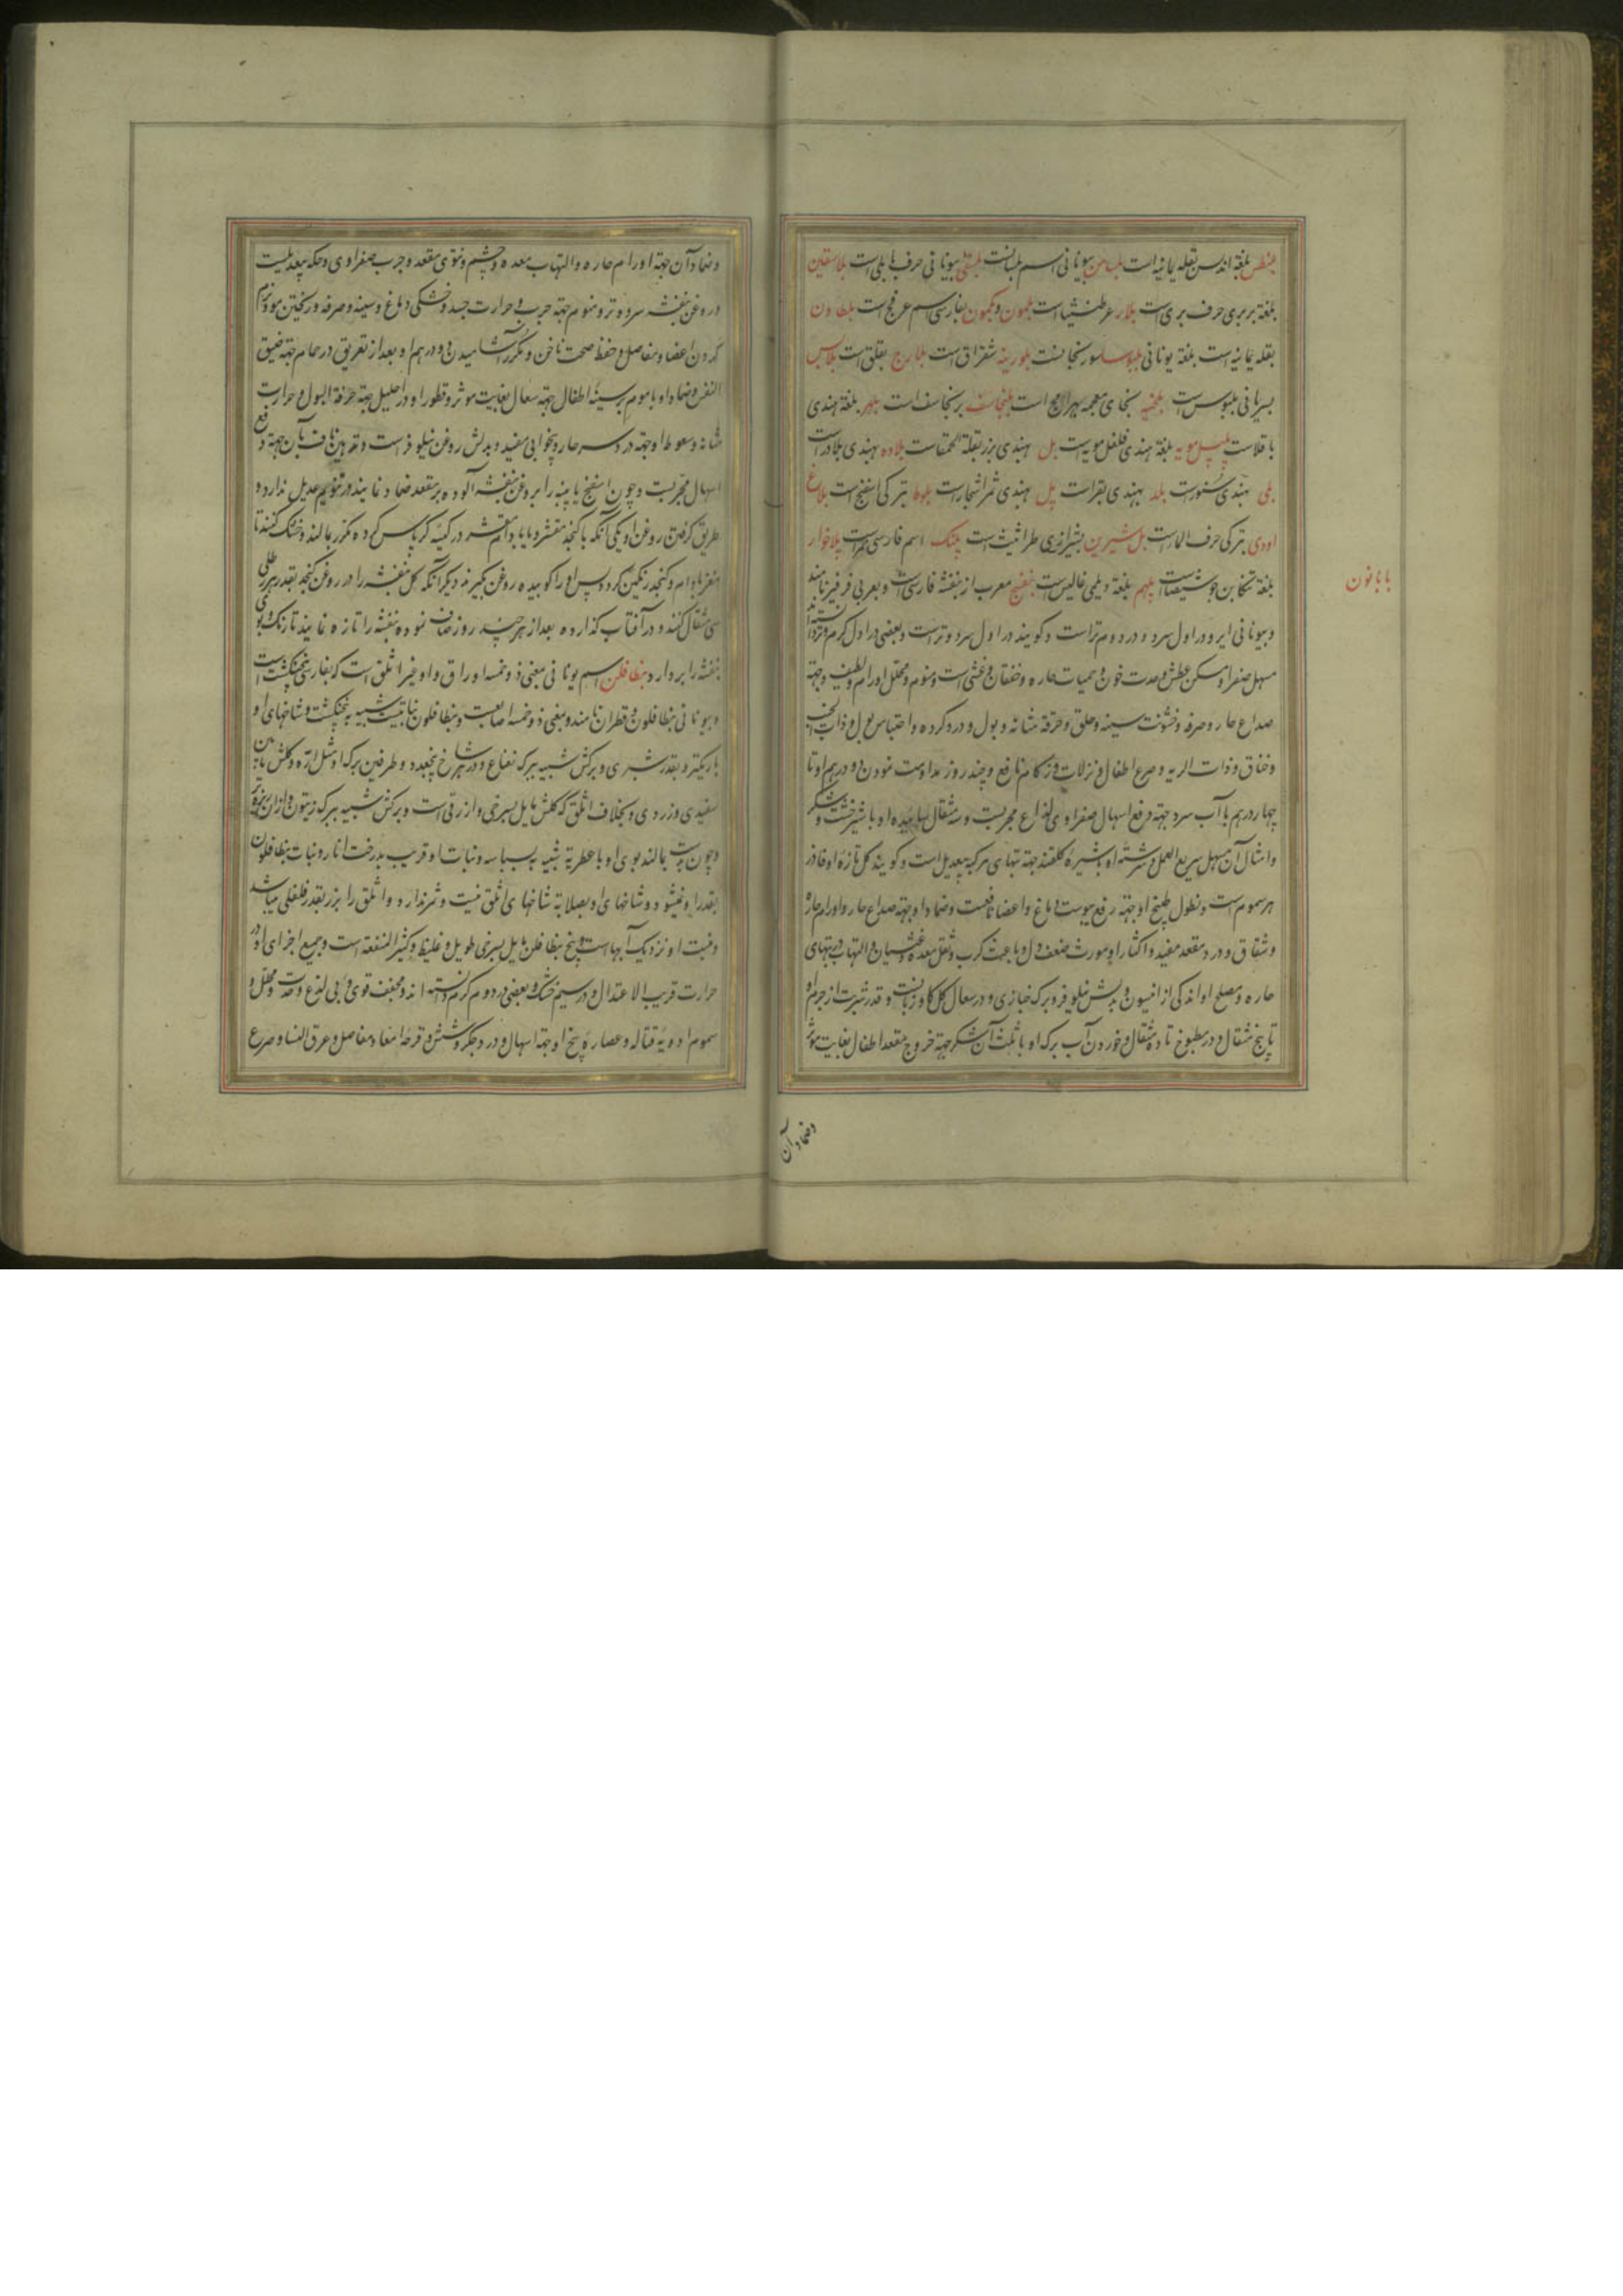 بلغة اندلس بقله یمانیه است بلسان بیونانی اسم بلسانست بیونانی حرف بابلی است بلاسقین
بلغة بربری حرف بری است بلار عرطنیثا است بلون و بکمون بفارسی اسم عرفج است بلطادون
بقله یمانیه است بلغة یونانی بلبوسا سورنجانست بلورینه شقراق است بلارج لقلق است بلاس
بسریانی بلبوس است بلخیه بخای معجمه بهرامج است بلنجاسف برنجاسف است بلهر بلغة هندی
باقلاست پیپل مویه بلغة هندی فلفل مویه است بل هندی بزر بقلة الحمقاست بلاوه بهندی بلادر است
بلی بهندی سنورست بلد بهندی بقراست پل بهندی ثمر اشجارست بلوط بترکی اسفنج است بلاغ
اودی بترکی حرف الماراست بل شیرین بشیرازی طراثیث است پلنک اسم فارسی نمراست پلاخوار
بلغة تنکابن است پلهم بلغة دیلمی است بنفسج معرب از بنفشه فارسی است و بعربی فرفیر نامند
و بیونانی ایر و در اول سرد و در دوم تراست و کویند در اول سرد و ترست و بعضی در اول کرم و تر دانسته‌اند
مسهل صفرا و مسکن عطش و حدت خون و حمیات حاره و خفقان و غشی است و منوم و محلل اورام و لطیف و جهة
صداع حار و سرفه و خشونت سینه و حلق و حرقة مثانه و بول و درد کرده و احتباس بول و ذات الجنب
و خناق و ذات الریه و صرع اطفال و نزلات و زکام نافع و چند روز مداومت نمودن دو درهم او تا
چهار درهم با آب سرد جهة رفع اسهال صفراوی لذاع مجربست و سه مثقال سائیده او با شیرخشت و شکر
و امثال آن مسهل سریع العمل و سرشته او با شیره کلقند جهة تبهای مرکبه بیعدیل است و کویند کل تازه او فادزهر
هر سموم است و نطول طبیخ او جهة رفع یبوست دماغ و اعضا نافعست و ضماد او جهة صداع حار و اورام حاره
و شقاق و درد مقعد مفید و اکثار او مورث ضعف دل و باعث کرب و ثقل معده و غثیان و التهاب در تبهای
حاره و مصلح او اندکی از انیسون و بدلش نیلوفر و برک خبازی و در سعال کل کاوزبانست و قدر شربت از جرم او
تا پنج مثقال و در مطبوخ تا ده مثقال و خوردن آب برک او با ثلث آن شکر جهة خروج مقعد اطفال بغایت مؤثر
بابانون
وضماد آن
و ضماد آن جهة اورام حاره و التهاب معده و چشم و نتوی مقعد و جرب صفراوی و حکه بیعدیلست
و روغن بنفشه سرد و تر و منوم جهة جرب و حرارت جسد و خشکی دماغ و سینه و سرفه و ریختن مو و نرم
کردن اعضا و مفاصل و حفظ صحت ناخن و مکرر آشامیدن دو درهم او بعد از تعریق در حمام جهة ضیق
النفس و ضماد او با موم بر سینه اطفال جهة سعال بغایت موثر و قطور او در احلیل جهة حرقة البول و حرارت
مثانه و سعوط او جهة درد سر حار و بیخوابی مفید و بدلش روغن نیلوفرست و تدهین ناف بآن جهة دفع
اسهال مجربست و چون اسفنج یا پنبه را بروغن بنفشه آلوده بر مقعد ضماد نمایند در تنویم عدیل ندارد و
طریق کرفتن روغن او یکی آنکه با کنجد مقشر و یا بادام مقشر در کیسه کرباس کرده مکرر بمالند و خشک کنند تا
مغز بادام و کنجد رنکین کردد پس او را کوبیده روغن بکیرند دیکر آنکه کل بنفشه را در روغن کنجد بقدر هر رطلی
سی مثقال کنند و در آفتاب کذارده بعد از هر چند روز صاف نموده بنفشه را تازه نمایند تا رنک و بوی
بنفشه را بردارد بنطافلن اسم یونانی بمعنی ذو خمسه اوراق و او غیر اثلق است که بفارسی پنجنکشت است
و بیونانی بنطافلون و قطران نامند و بمعنی ذو خمسه اصابعست و بنطافلون نباتیست شبیه به پنجنکشت و شاخهای او
باریکتر و بقدر شبری و برکش شبیه ببرک نعناع و در هر شاخ پنج عدد و طرفین برک او مثل اره و کلش مابین
سفیدی و زردی و بخلاف اثلق که کلش مایل بسرخی و ازرقی است و برکش شبیه ببرک زیتون و از آن ریزه‌تر
و چون بدست بمالند بوی او با عطریة شبیه به بسباسه و نبات او قریب بدرخت انار و نبات بنطافلون
بقدر او نمیشود و شاخهای او بصلابة شاخهای اثلق نیست و ثمر ندارد و اثلق را بزر بقدر فلفلی میباشد
و منبت او نزدیک آبهاست و بیخ بنطافلن مایل بسرخی طویل و غلیظ و کثیر المنفعة است و جمیع اجزای او در
حرارت قریب الاعتدال و در سیم خشک و بعضی در دوم کرم دانسته‌اند و مجفف قوی و بی لذع و حدت و محلل و
سموم ادویه قتاله و عصاره بیخ او جهة اسهال و درد جکر و شش و قرحه امعا و مفاصل و عرق النسا و صرع